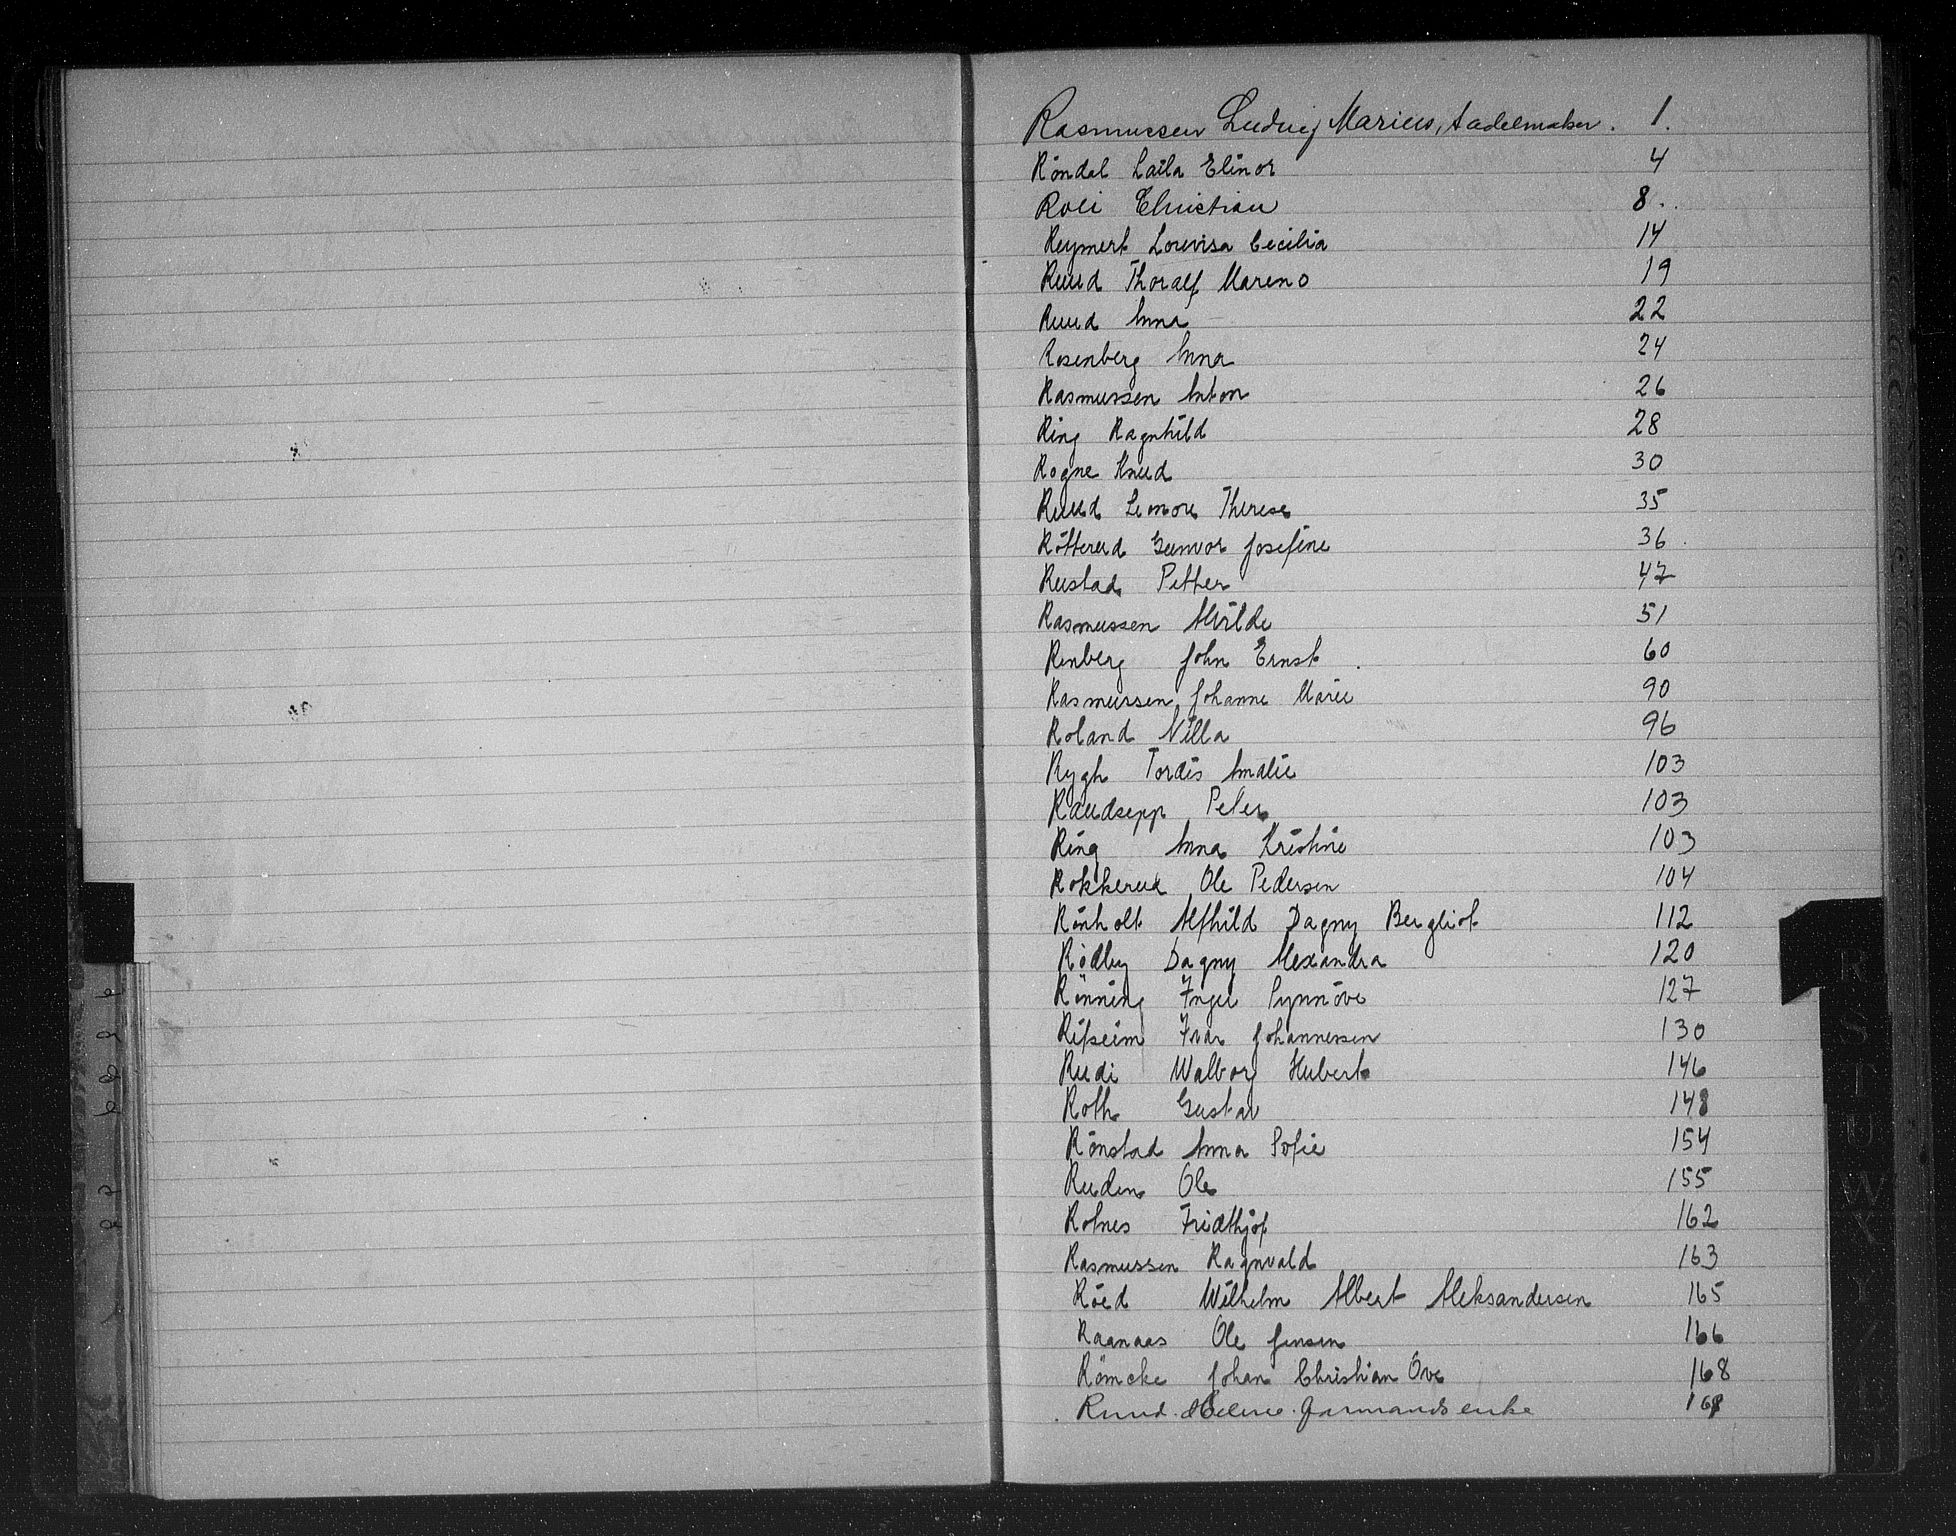 Rasmussen Ludvig Marius, sadelmaker. 1.
Röndal Laila Elinor 4
Roli Christian 8.
Reymert Lovvisa Cecilia 14
Ruud Thoralf Mareno 19
Ruud Anna 22
Rosenberg Anna 24
Rasmussen Anton 26
Ring Ragnhild 28
Rogne Knud 30
Ruud Leonore Therese 35
Rötterud Gunvor Josefine 36
Rustad Petter 47
Rasmussen Alvilde 51
Renberg John Ernst 60
Rasmussen Johanne Marie 90
Roland Nilla 96
Rygh Tordis Amalie 103
Raudsepp Peter 103
Ring Anna Kristine 103
Rokkerud Ole Pedersen 104
Rönholt Alfhild Dagny Bergliot 112
Rödby Dagny Alexandra 120
Rönning Inger Synnöve 127
Ripseim Ivar Johannessen 130
Rudi Walborg Hubert 146
Roth Gustav 148
Rönstad Anna Sofie 154
Ruden Ole 155
Rofnes Fridthjof 162
Rasmussen Ragnvald 163
Röed Wilhelm Albert Aleksandersen 165
Raanaas Ole Jensen 166
Römcke Johan Christian Ove 168
Ruud. Helene. Garmands enke 168
R
S
T
U
W
X
Y